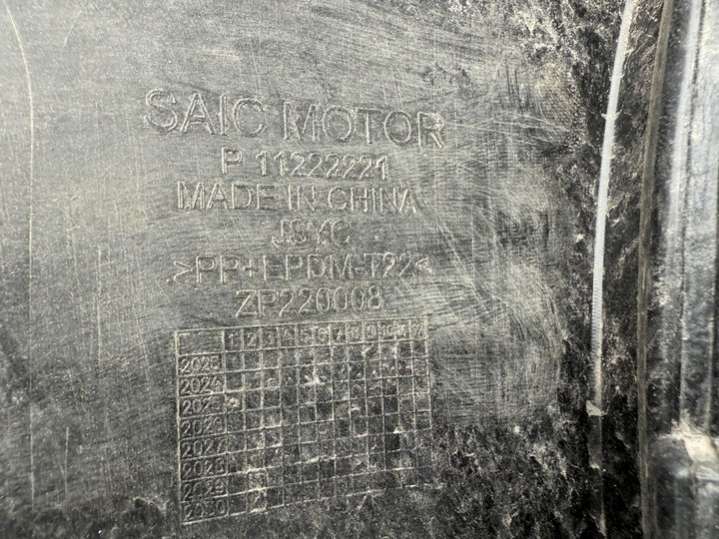 SAIC MOTOR
P 11222221
MADE IN CHINA
JSYC
>PP+EPDM-T22<
ZP220008
1 2 3 4 5 6 7 8 9 10 11 12
2024
2027
2028
2029
2030